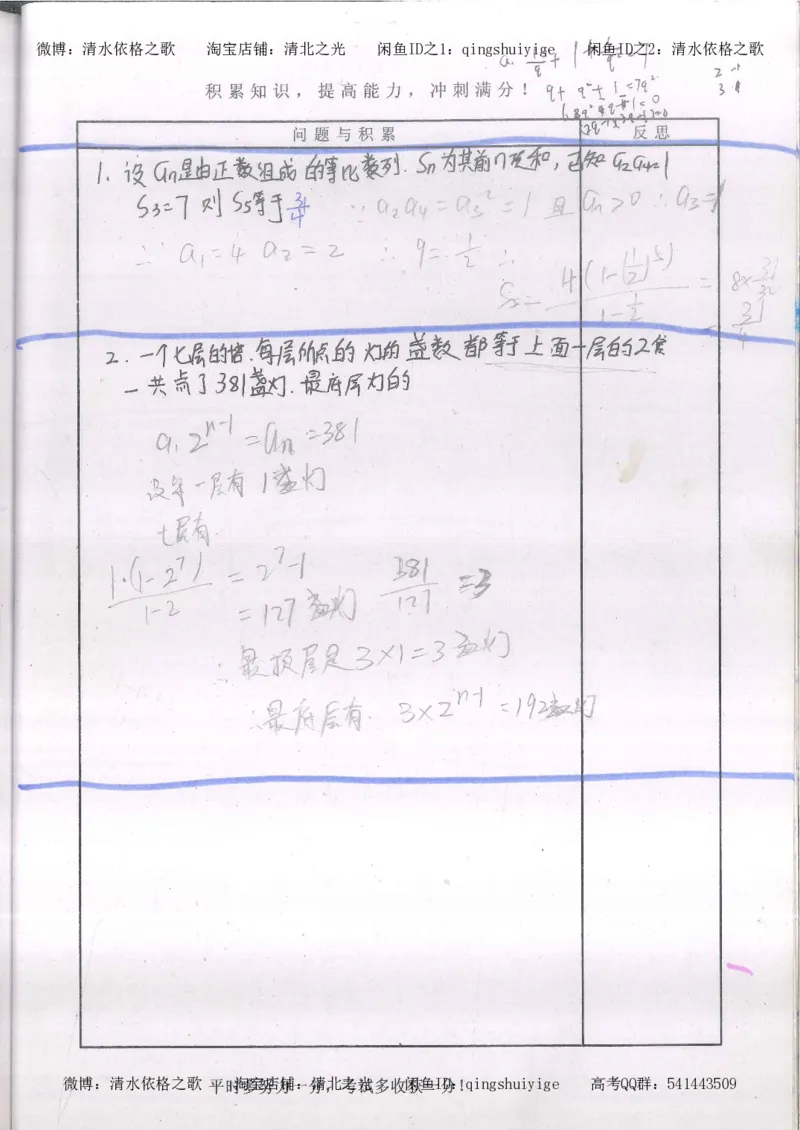 微博：清水依格之歌 淘宝店铺：清北之光 闲鱼ID之1：qingshuiyige 闲鱼ID之2：清水依格之歌
积累知识，提高能力，冲刺满分！
q+q²+1=7q²
问题与积累 反思
1. 设an是由正数组成的等比数列. Sn为其前n项和，已知a2a4=1
S3=7 则S5等于 31/4 ∵a2a4=a3²=1 且an>0 ∴a3=1
∴a1=4 a2=2 ∴q=1/2 ∴
S5=4(1-(1/2)^5)/(1-1/2) = 8×31/32
31/4
2. 一个七层的塔.每层所点的灯的盏数都等于上面一层的2倍
一共点了381盏灯.最底层灯的
a1 2^(n-1) =an =381
设第一层有1盏灯
七层有
1·(1-2^7)/(1-2) = 2^7-1 381/127 =3
=127盏灯
∴最顶层是3×1=3盏灯
∴最底层有 3×2^(n-1) =192盏灯
微博：清水依格之歌 淘宝店铺：清北之光 闲鱼ID：qingshuiyige 高考QQ群：541443509
平时多努力一分，考试多收获一分！